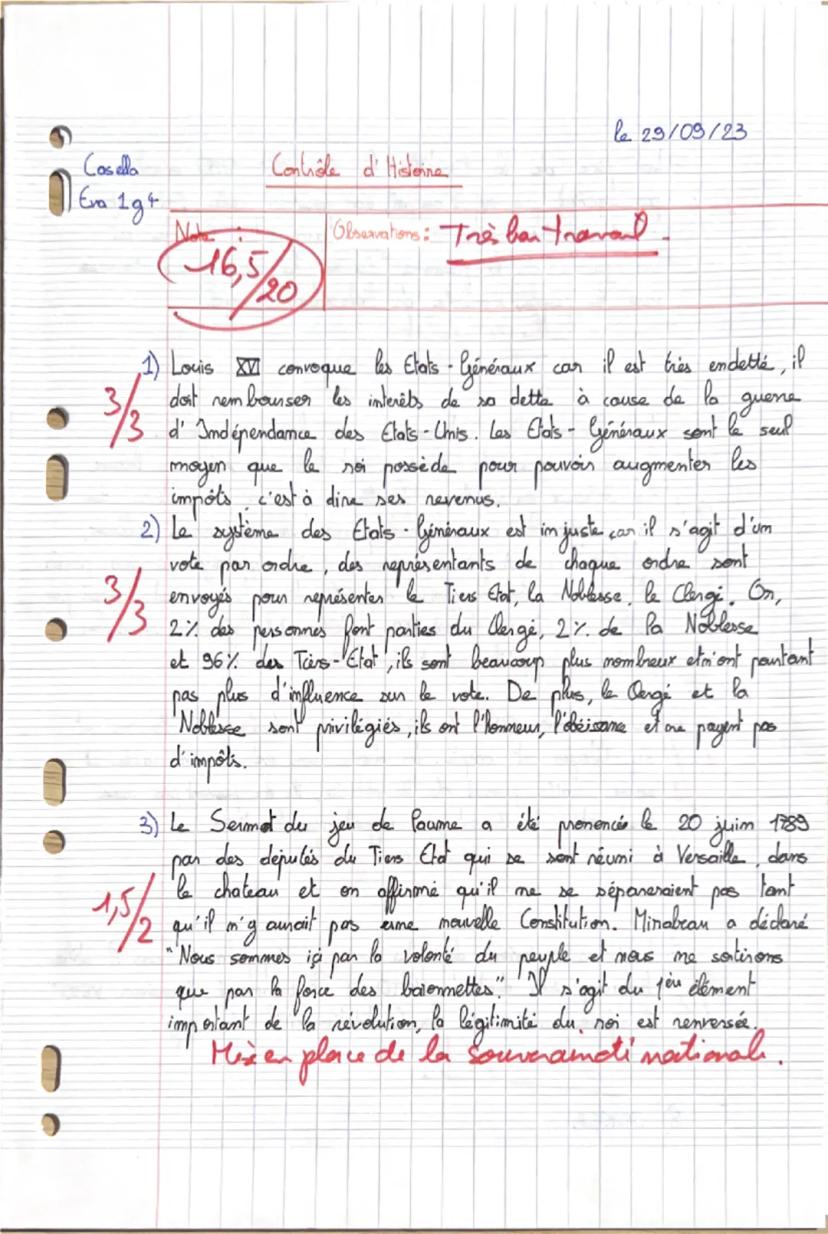 le 29/09/23
Casella
Eva 1g4
Contrôle d'Histoire
Note :
16,5/20
Observations : Très bon travail.
1) Louis XVI convoque les Etats-Généraux car il est très endetté, il
3/3
doit rembourser les interêts de sa dette à cause de la guerre
d'Indépendance des Etats-Unis. Les Etats-Généraux sont le seul
moyen que le roi possède pour pouvoir augmenter les
impôts, c'est à dire ses revenus.
2) Le système des Etats-Généraux est injuste car il s'agit d'un
vote par ordre, des représentants de chaque ordre sont
3/3
envoyés pour représenter le Tiers Etat, la Noblesse, le Clergé. Or,
2% des personnes font parties du Clergé, 2% de la Noblesse
et 96% des Tiers-Etat, ils sont beaucoup plus nombreux et n'ont pourtant
pas plus d'influence sur le vote. De plus, le Clergé et la
Noblesse sont privilégiés, ils ont l'honneur, l'obéisane et ne payent pas
d'impôts.
3) Le Serment du jeu de Paume a été prononcé le 20 juin 1789
par des députés du Tiers Etat qui se sont réumi à Versaille, dans
1,5/2
le chateau et on affirmé qu'il ne se sépareraient pas tant
qu'il n'y aurait pas une nouvelle Constitution. Mirabeau a déclaré
"Nous sommes içi par la volonté du peuple et nous ne sortirons
que par la force des baionnettes." Il s'agit du 1er élément
important de la révolution, la légitimité du roi est renversée.
Mise en place de la souveraineté nationale.